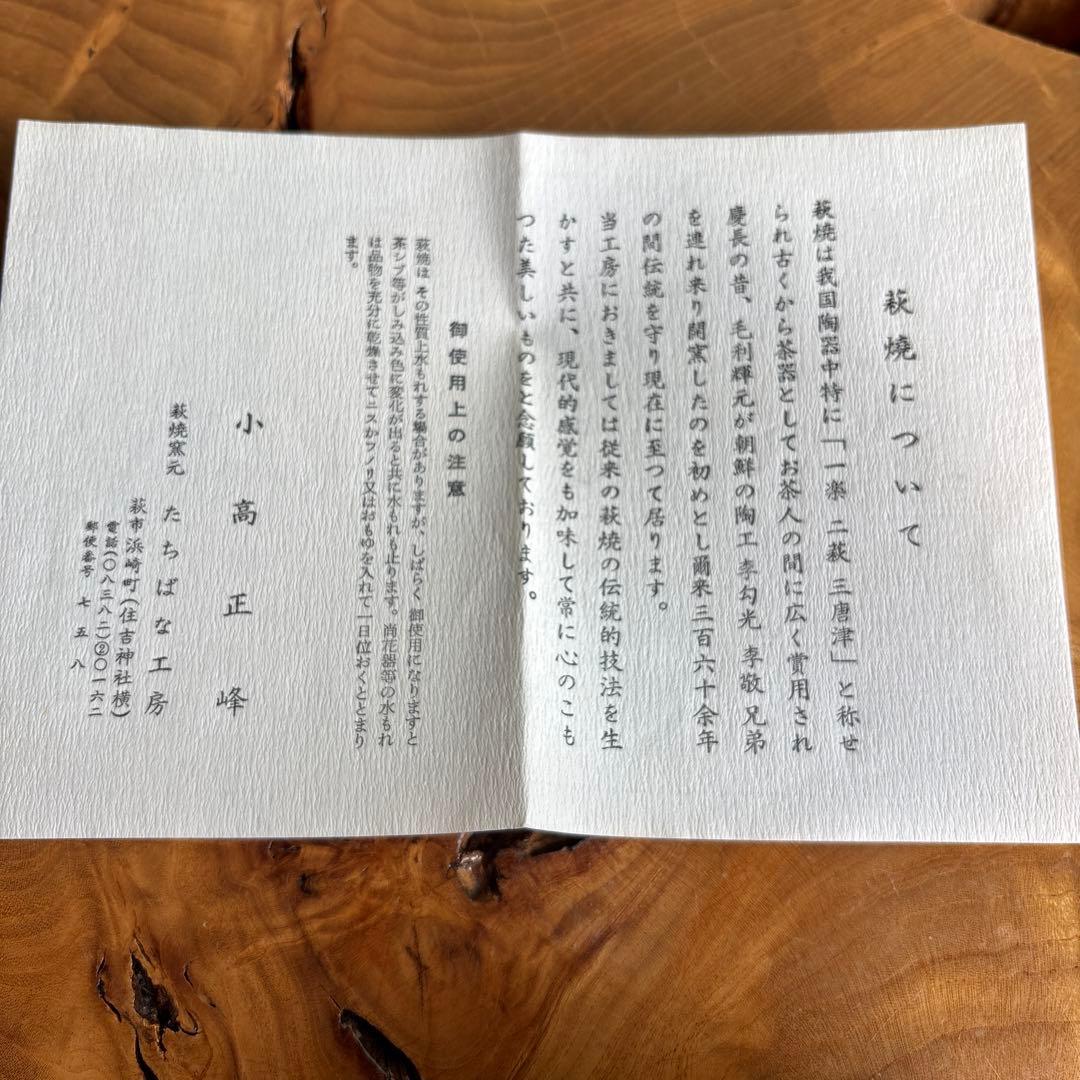 萩焼について
萩焼は我国陶器中特に「一楽 二萩 三唐津」と称せ
られ古くから茶器としてお茶人の間に広く賞用され
慶長の昔、毛利輝元が朝鮮の陶工 李勺光 李敬 兄弟
を連れ来り開窯したのを初めとし爾来三百六十余年
の間伝統を守り現在に至つて居ります。
当工房におきましては従来の萩焼の伝統的技法を生
かすと共に、現代的感覚をも加味して常に心のこも
つた美しいものをと念願しております。
御使用上の注意
萩焼は その性質上水もれする場合がありますが、しばらく 御使用になりますと
茶シブ等がしみ込み色に変化が出ると共に水もれも止ります。尚花器等の水もれ
は品物を充分に乾燥させてニスかフノリ又はおもゆを入れて一日位おくととまり
ます。
小高正峰
萩焼窯元 たちばな工房
萩市浜崎町(住吉神社横)
電話(〇八三八二)②〇一六二
郵便番号 七五八